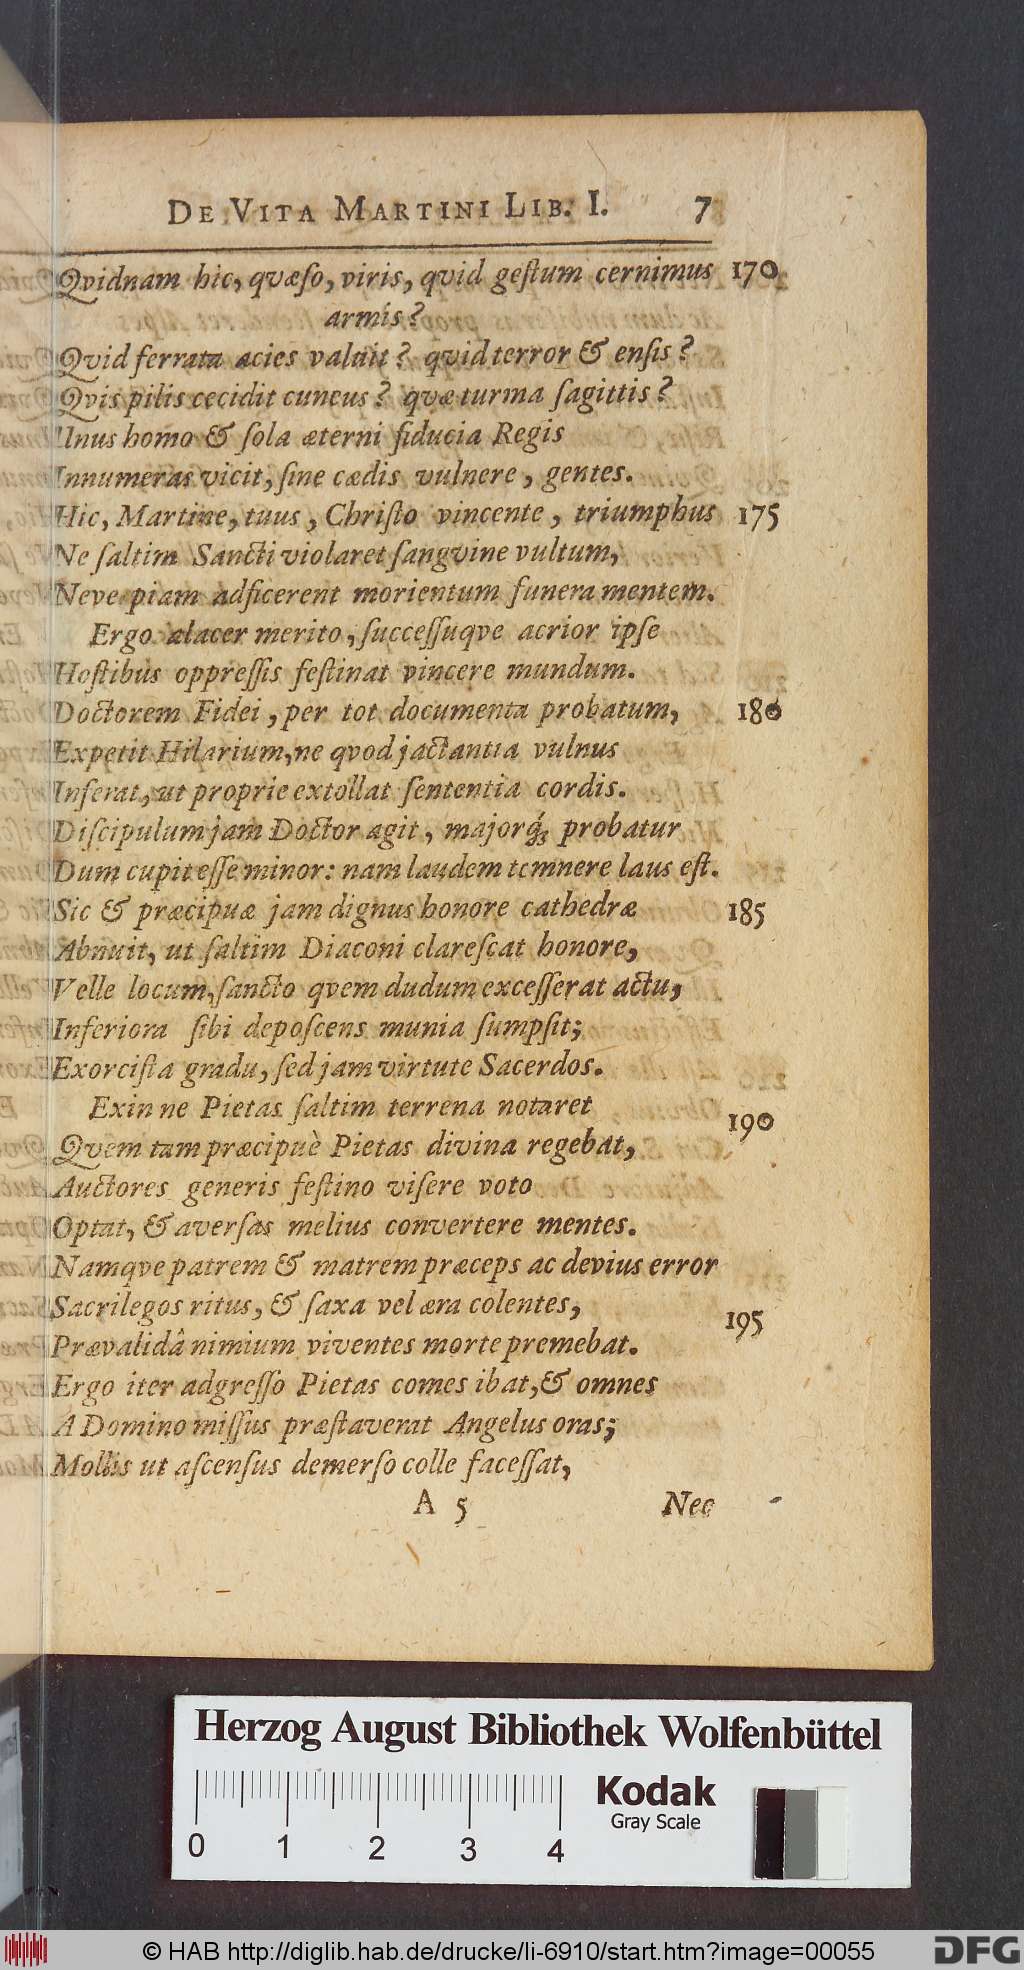 DE VITA MARTINI LIB. I. 7
Qvidnam hic, qvæſo, viris, qvid geſtum cernimus 170
armis?
Qvid ferrata acies valuit? qvid terror & enſis?
Qvis pilis cecidit cuneus? qvæ turma ſagittis?
Unus homo & ſola æterni fiducia Regis
Innumeras vicit, ſine cædis vulnere, gentes.
Hic, Martine, tuus, Chriſto vincente, triumphus 175
Ne ſaltim Sancti violaret ſangvine vultum,
Neve piam adficerent morientum funera mentem.
Ergo alacer merito, ſucceſſuqve acrior ipſe
Hoſtibus oppreſſis feſtinat vincere mundum.
Doctorem Fidei, per tot documenta probatum, 180
Expetit Hilarium, ne qvod jactantia vulnus
Inſerat, ut proprie extollat ſententia cordis.
Diſcipulum jam Doctor agit, majorq́; probatur
Dum cupit eſſe minor: nam laudem temnere laus eſt.
Sic & præcipuæ jam dignus honore cathedræ 185
Abnuit, ut ſaltim Diaconi clareſcat honore,
Velle locum, ſancto qvem dudum exceſſerat actu,
Inferiora ſibi depoſcens munia ſumpſit;
Exorciſta gradu, ſed jam virtute Sacerdos.
Exin ne Pietas ſaltim terrena notaret 190
Qvem tam præcipuè Pietas divina regebat,
Auctores generis feſtino viſere voto
Optat, & averſas melius convertere mentes.
Namqve patrem & matrem præceps ac devius error
Sacrilegos ritus, & ſaxa vel æra colentes, 195
Prævalidâ nimium viventes morte premebat.
Ergo iter adgreſſo Pietas comes ibat, & omnes
A Domino miſſus præſtaverat Angelus oras;
Mollis ut aſcenſus demerſo colle faceſſat,
A 5 Nec
Herzog August Bibliothek Wolfenbüttel
Kodak
Gray Scale
0 1 2 3 4
© HAB http://diglib.hab.de/drucke/li-6910/start.htm?image=00055
DFG